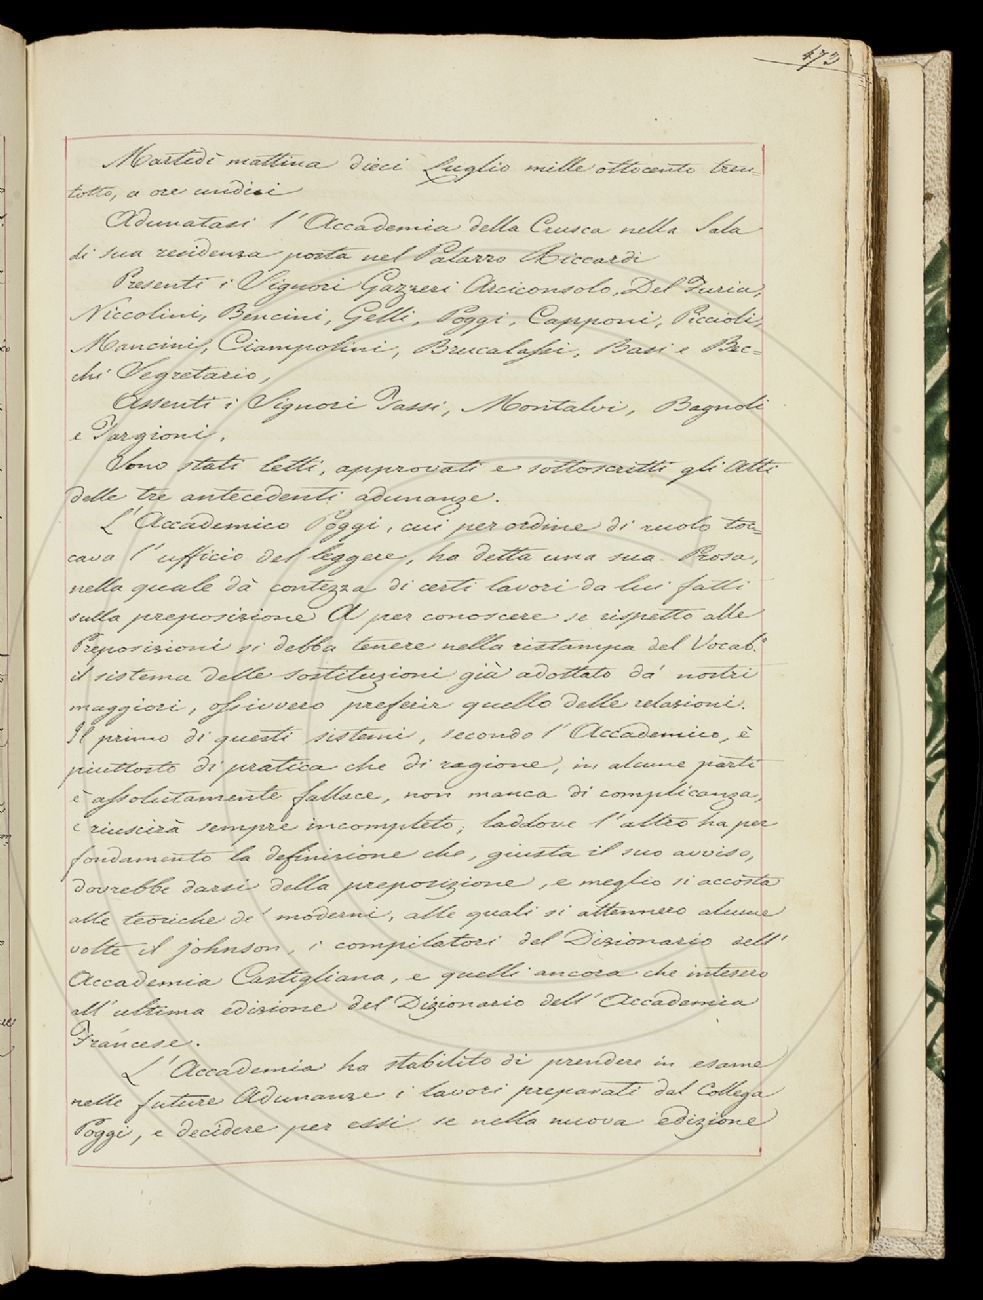 473
Martedì mattina dieci Luglio mille ottocento tren-
totto, a ore undici
Adunatasi l'Accademia della Crusca nella Sala
di sua residenza posta nel Palazzo Riccardi
Presenti i Signori Gazzeri Arciconsolo, Del Furia,
Niccolini, Bencini, Gelli, Poggi, Capponi, Piccioli,
Mancini, Ciampolini, Brucalassi, Basi e Bec-
chi Segretario,
Assenti i Signori Tassi, Montalvi, Bagnoli
e Targioni.
Sono stati letti, approvati e sottoscritti gli Atti
delle tre antecedenti adunanze.
L'Accademico Poggi, cui per ordine di ruolo toc-
cava l'ufficio del leggere, ha detta una sua Prosa,
nella quale dà contezza di certi lavori da lui fatti
sulla preposizione A per conoscere se rispetto alle
Preposizioni si debba tenere nella ristampa del Vocab.º
il sistema delle sostituzioni già adottato da' nostri
maggiori, ossivvero preferir quello delle relazioni.
Il primo di questi sistemi, secondo l'Accademico, è
piuttosto di pratica che di ragione, in alcune parti
è assolutamente fallace, non manca di complicanza,
e riuscirà sempre incompleto; laddove l'altro ha per
fondamento la definizione che, giusta il suo avviso,
dovrebbe darsi della preposizione, e meglio si accosta
alle teoriche de' moderni, alle quali si attennero alcune
volte il Johnson, i compilatori del Dizionario dell'
Accademia Castigliana, e quelli ancora che intesero
all'ultima edizione del Dizionario dell'Accademia
Francese.
L'Accademia ha stabilito di prendere in esame
nelle future Adunanze i lavori preparati dal Collega
Poggi, e decidere per essi se nella nuova edizione